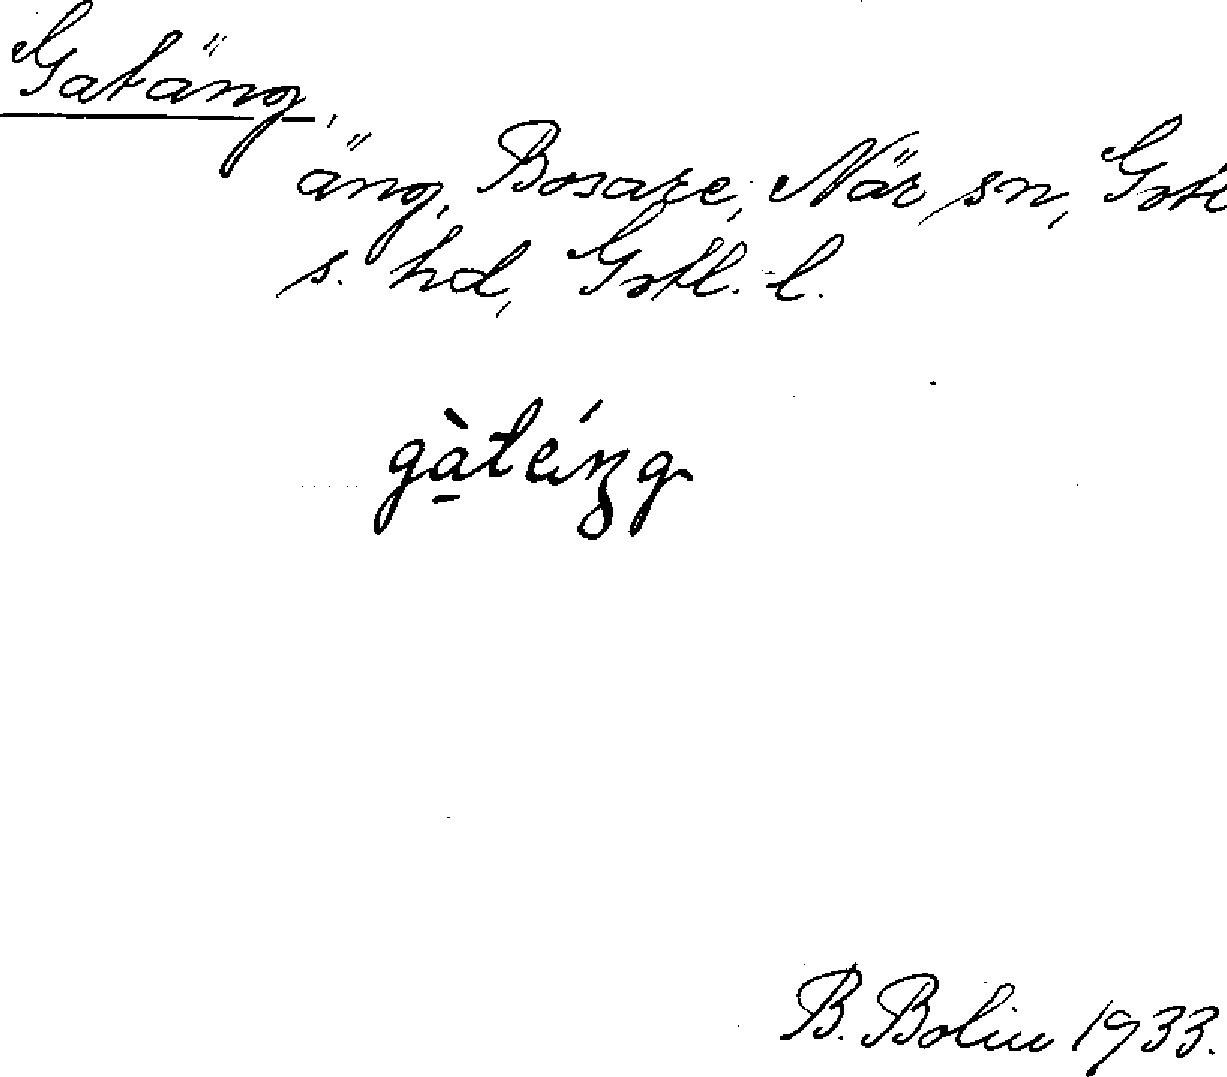 Gatäng,
äng, Bosare, När sn, Gotl
s. hd, Gotl. l.
gàtéŋg
B. Bolin 1933.